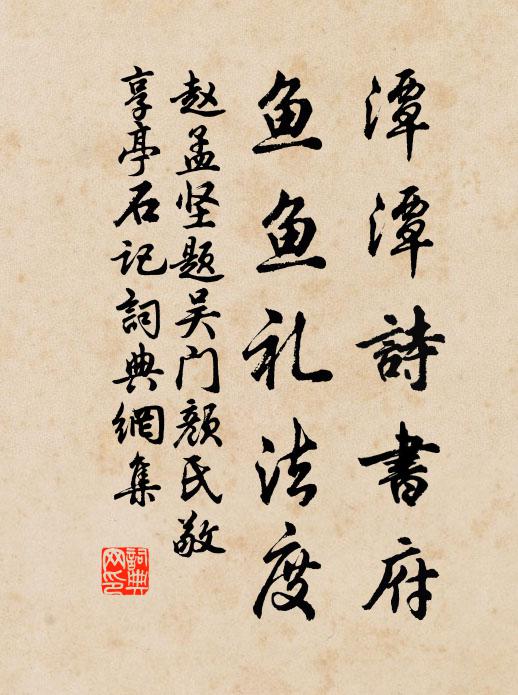 潭潭詩書府
鱼鱼礼法度
赵孟坚题吴门颜氏敬
享亭石记詞典網集
詞典网印